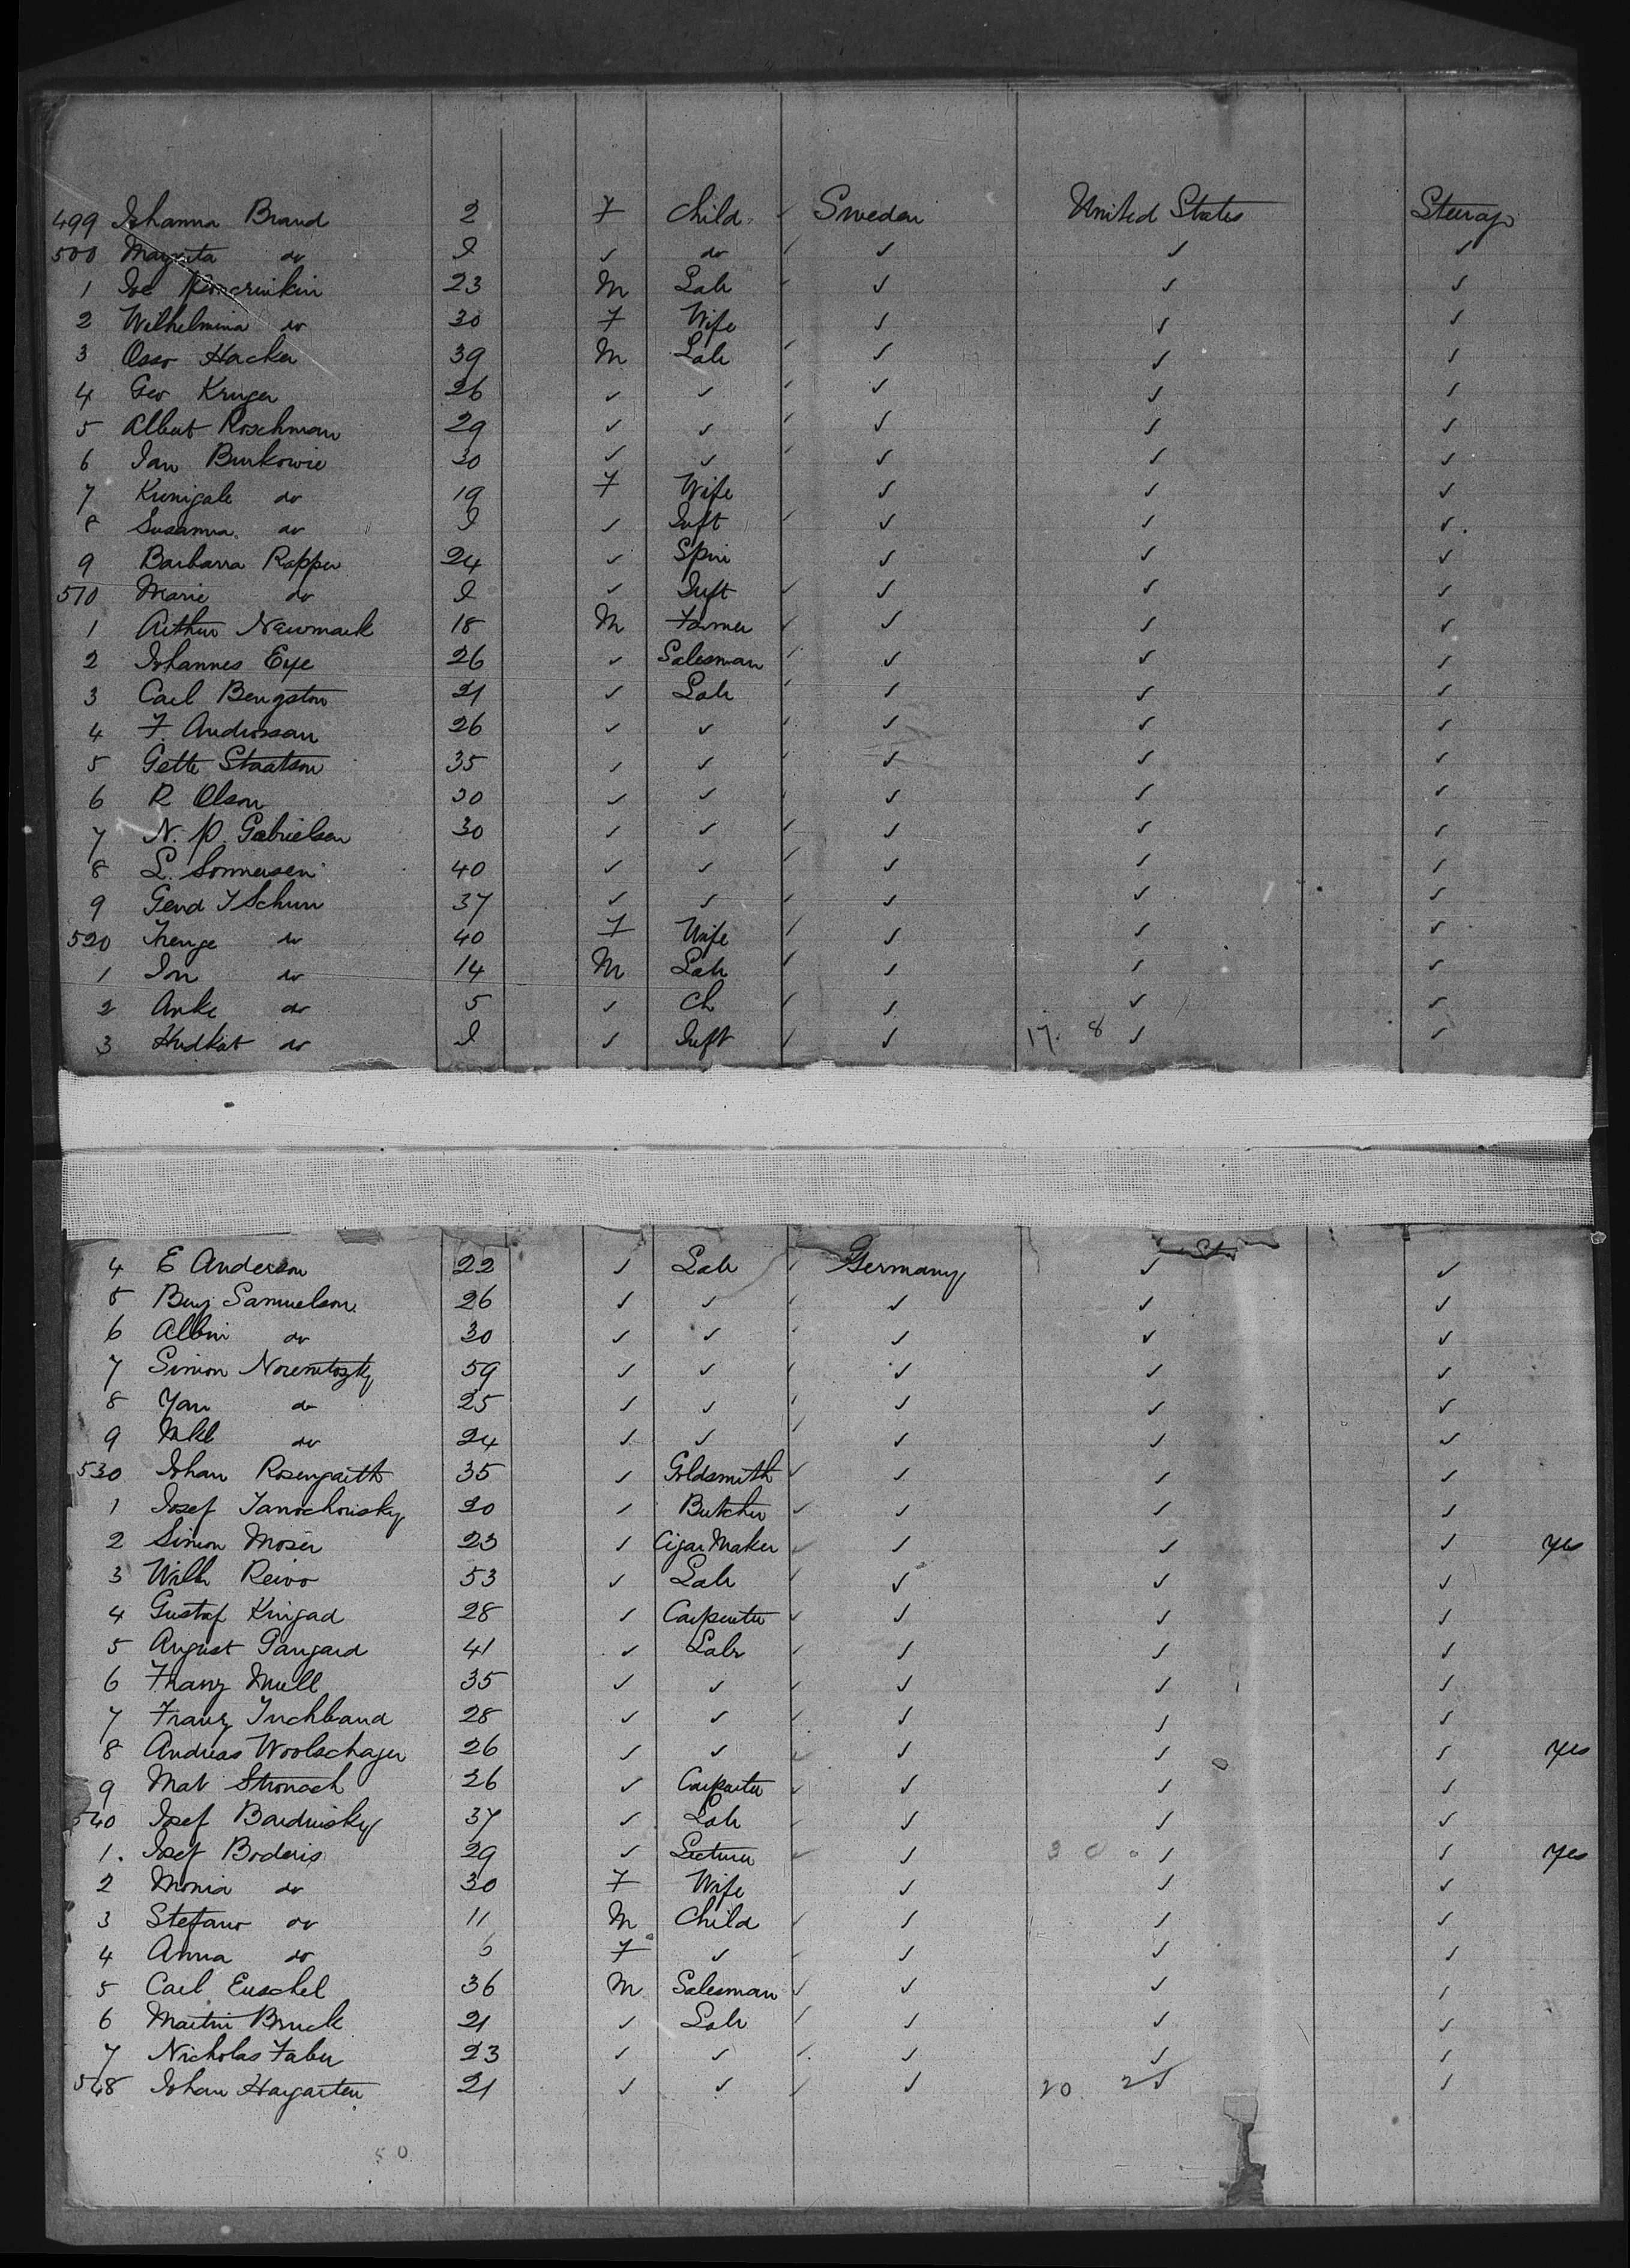 499 Johanna Brand 2 F Child ✓ Sweden United States Steerage
500 Magreta do I ✓ do ✓ ✓ ✓ ✓
1 Joe 23 M Labr ✓ ✓ ✓ ✓
2 Wilhelmina do 30 F Wife ✓ ✓ ✓
3 Osso Hacker 39 M Labr ✓ ✓ ✓ ✓
4 Geo Kruger 26 ✓ ✓ ✓ ✓ ✓ ✓
5 Albert Roschman 29 ✓ ✓ ✓ ✓ ✓ ✓
6 Jan Burkowie 30 ✓ ✓ ✓ ✓ ✓ ✓
7 Kunigale do 19 F Wife ✓ ✓ ✓
8 Susanna do I ✓ Inft ✓ ✓ ✓ ✓
9 Barbarra Rapper 24 ✓ Spin ✓ ✓ ✓
510 Marie do I ✓ Inft ✓ ✓ ✓ ✓
1 Arthur Newmark 18 M Farmer ✓ ✓ ✓ ✓
2 Johannes Eye 26 ✓ Salesman ✓ ✓ ✓ ✓
3 Carl Bengston 21 ✓ Labr ✓ ✓ ✓ ✓
4 F. Andersson 26 ✓ ✓ ✓ ✓ ✓ ✓
5 Gette Staatson 35 ✓ ✓ ✓ ✓ ✓ ✓
6 R Olson 30 ✓ ✓ ✓ ✓ ✓ ✓
7 N. P. Gabrielsen 30 ✓ ✓ ✓ ✓ ✓ ✓
8 L. Sonnersen 40 ✓ ✓ ✓ ✓ ✓ ✓
9 Gerd 37 ✓ ✓ ✓ ✓ ✓ ✓
520 Trenge do 40 F Wife ✓ ✓ ✓ ✓
1 Jon do 14 M Labr ✓ ✓ ✓ ✓
2 Anke do 5 ✓ Ch ✓ ✓ ✓ ✓
3 Hudkat do I ✓ Inft ✓ ✓ 17. 8 ✓ ✓
4 E Anderson 22 ✓ Labr ✓ Germany ✓ St ✓
5 Benj Samuelson 26 ✓ ✓ ✓ ✓ ✓ ✓
6 Albin do 30 ✓ ✓ ✓ ✓ ✓ ✓
7 Simon 59 ✓ ✓ ✓ ✓ ✓ ✓
8 Yan do 25 ✓ ✓ ✓ ✓ ✓ ✓
9 Mkl do 24 ✓ ✓ ✓ ✓ ✓ ✓
530 Johan Rosengarth 35 ✓ Goldsmith ✓ ✓ ✓ ✓
1 Josef Janochowsky 20 ✓ Butcher ✓ ✓ ✓ ✓
2 Simon Moser 23 ✓ Cigar Maker ✓ ✓ ✓ ✓ Yes
3 Willh Reivo 53 ✓ Labr ✓ ✓ ✓ ✓
4 Gustaf Kingad 28 ✓ Carpenter ✓ ✓ ✓ ✓
5 August Gangard 41 ✓ Labr ✓ ✓ ✓ ✓
6 Franz Mull 35 ✓ ✓ ✓ ✓ ✓ ✓
7 Franz Inchband 28 ✓ ✓ ✓ ✓ ✓ ✓
8 Andreas Woolschager 26 ✓ ✓ ✓ ✓ ✓ ✓ Yes
9 Mat Stronach 26 ✓ Carpenter ✓ ✓ ✓ ✓
540 Josef Bardinsky 37 ✓ Labr ✓ ✓ ✓ ✓
1. Josef Boderis 29 ✓ Lecturer ✓ ✓ 3 0 ✓ ✓ Yes
2 Monia do 30 F Wife ✓ ✓ ✓
3 Stefano do 11 M Child ✓ ✓ ✓ ✓
4 Anna do F ✓ ✓ ✓ ✓ ✓
5 Carl Euschel 36 M Salesman ✓ ✓ ✓ ✓
6 Martin Bruck 21 ✓ Labr ✓ ✓ ✓ ✓
7 Nicholas Faber 23 ✓ ✓ ✓ ✓ ✓ ✓
548 Johan Hargarten 21 ✓ ✓ ✓ ✓ 20. 2 ✓ ✓
50